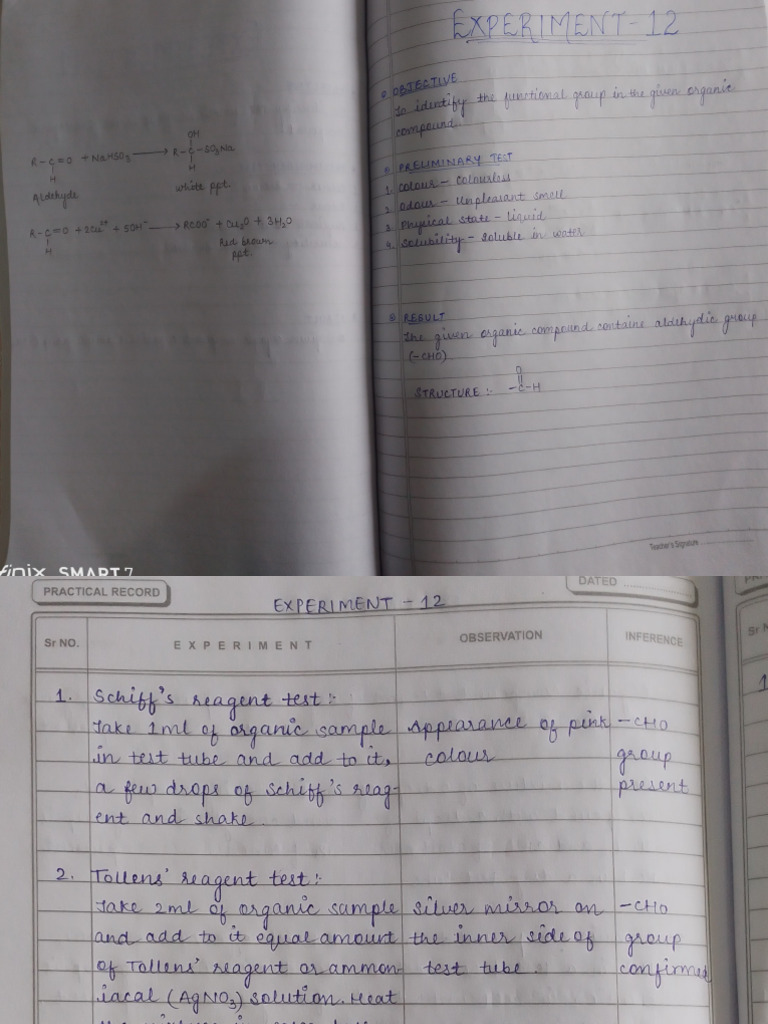 OH
R-C=O + NaHSO3 ⟶ R-C-SO3Na
H
H
Aldehyde
white ppt.
R-C=O + 2Cu²⁺ + 5OH⁻ ⟶ RCOO⁻ + Cu2O + 3H2O
H
Red brown
ppt.
EXPERIMENT-12
OBJECTIVE
To identify the functional group in the given organic
compound.
PRELIMINARY TEST
1. Colour - Colourless
2. Odour - Unpleasant smell
3. Physical state - liquid
4. Solubility - soluble in water
RESULT
The given organic compound contains aldehydic group
(-CHO)
O
STRUCTURE :- -C-H
Teacher's Signature
finix SMART 7
PRACTICAL RECORD
DATED
EXPERIMENT - 12
Sr NO. EXPERIMENT OBSERVATION INFERENCE
1. Schiff's reagent test :
Take 1ml of organic sample Appearance of pink -CHO
in test tube and add to it, colour group
a few drops of Schiff's reag- present
ent and shake.
2. Tollens' reagent test :
Take 2ml of organic sample silver mirror on -CHO
and add to it equal amount the inner side of group
of Tollens' reagent or ammon- test tube. confirmed
iacal (AgNO3) solution. Heat
Sr N
1